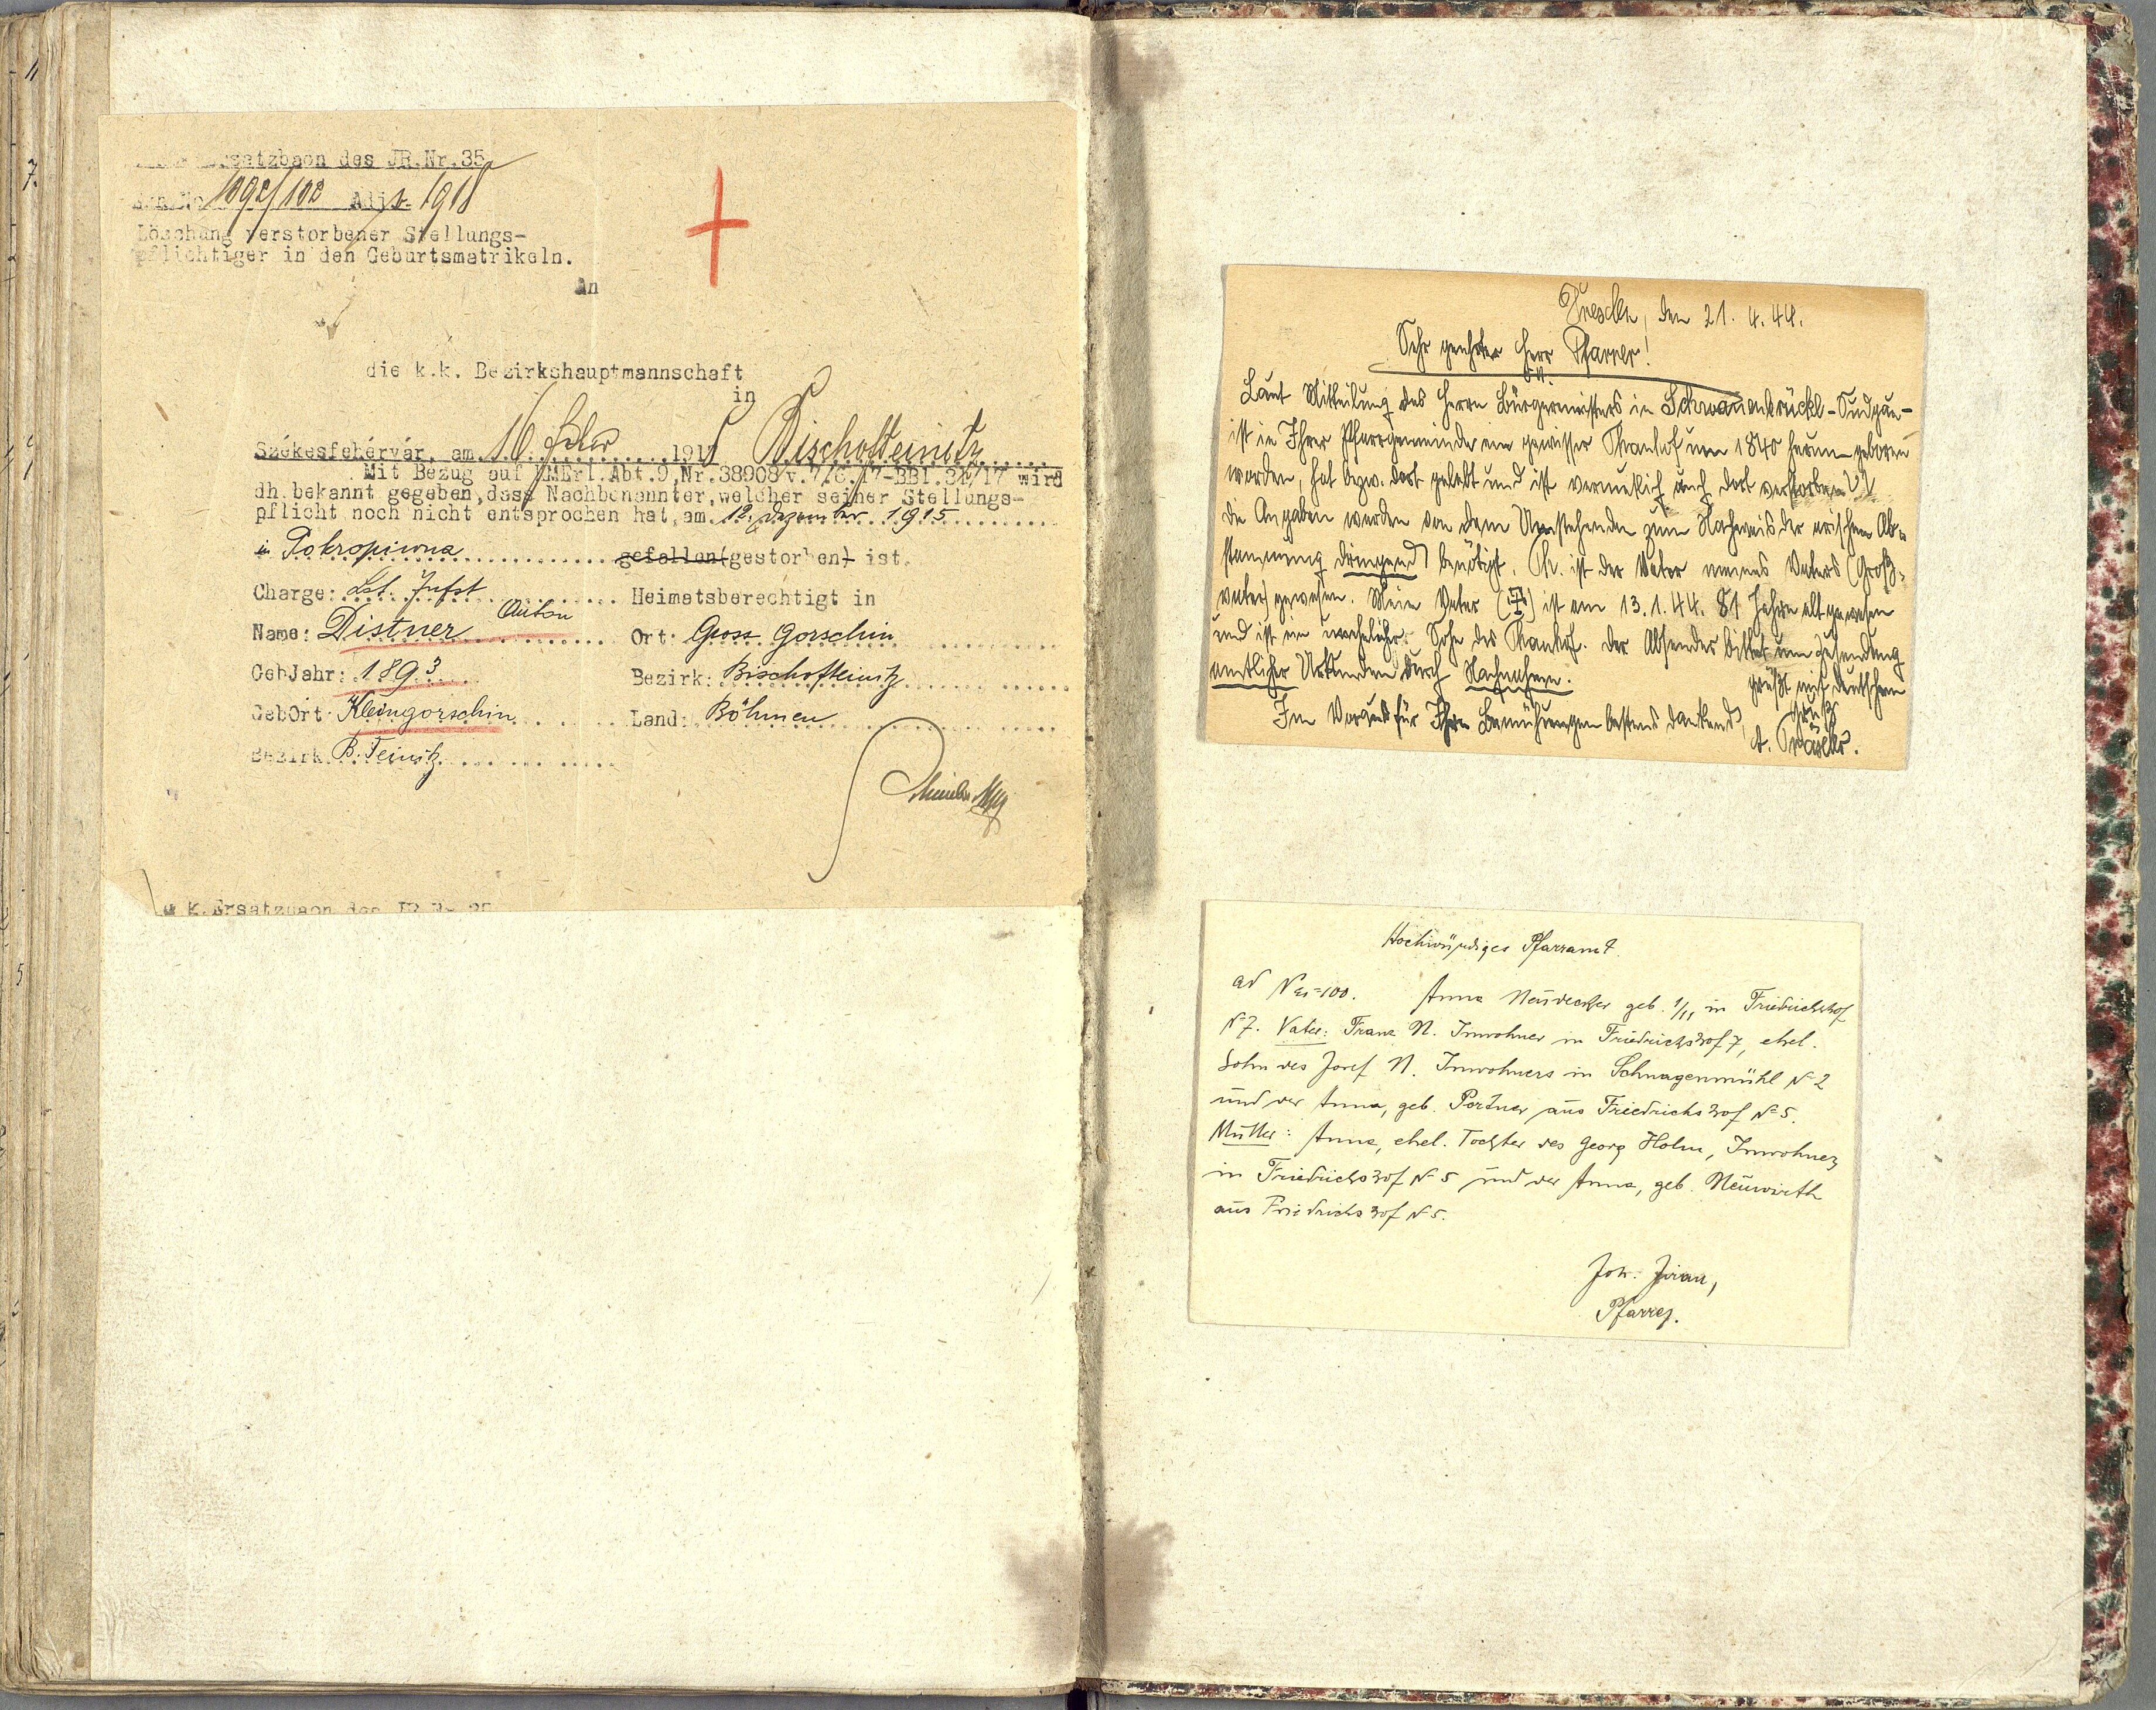 Ersatzbaon des JR.Nr.35
1092/102 Adj. 1918
Löschung verstorbener Stellungs-
pflichtiger in den Geburtsmatrikeln.
An
die k.k. Bezirkshauptmannschaft
in
Székesfehérvár, am 16 1918 Bischofteinitz
Mit Bezug auf KMErl.Abt.9,Nr.38908 v.7/6.17-BBl.34/17 wird
dh.bekannt gegeben,dass Nachbenannter,welcher seiner Stellungs-
pflicht noch nicht entsprochen hat,am 12. Dezember 1915
in Pokropiwna gefallen(gestorben) ist.
Charge: Lst. Inftst Heimatsberechtigt in
Name: Distner Anton Ort: Gross Gorschin
GebJahr: 1893 Bezirk: Bischofteinitz
GebOrt Kleingorschin Land: Böhmen
Bezirk B. Teinitz
k.Ersatzbaon des
den 21. 4. 44.
Sehr geehrter Herr Pfarrer!
Laut Mitteilung des Herrn Bürgermeisters in Schwanenbrückl - Sudgau -
ist in Ihrer Pfarrgemeinde ein gewisser um 1840 herum geboren
worden, hat bzw. dort gelebt und ist vermutlich auch dort verstorben.
die Angaben werden von dem Umstehenden zum Nachweis der arischen Ab-
stammung dringend benötigt. Th. ist der Vater meines Vaters (Groß-
vater) gewesen. Mein Vater ist am 13.1.44. 81 Jahre alt gewesen
und ist ein unehelicher Sohn des der Absender bittet um Zusendung
amtlicher Urkunden durch Nachnahme.
grüßt mit deutschem
Gruß
Im Voraus für Ihre Bemühungen bestens dankend,
Hochwürdiges Pfarramt
ad N 100. Anna Neudecker geb. 1/11 in Friedrichshof
N 7. Vater: Franz N. Inwohner in Friedrichshof 7, ehel.
Sohn des Josef N. Inwohners in Schnagenmühl N 2
und der Anna, geb. Portner aus Friedrichshof N 5.
Mutter: Anna, ehel. Tochter des Georg Holm, Inwohner
in Friedrichshof N 5 und der Anna, geb. Neuwirth
aus Friedrichshof N 5.
Joh. Jiran,
Pfarrer.